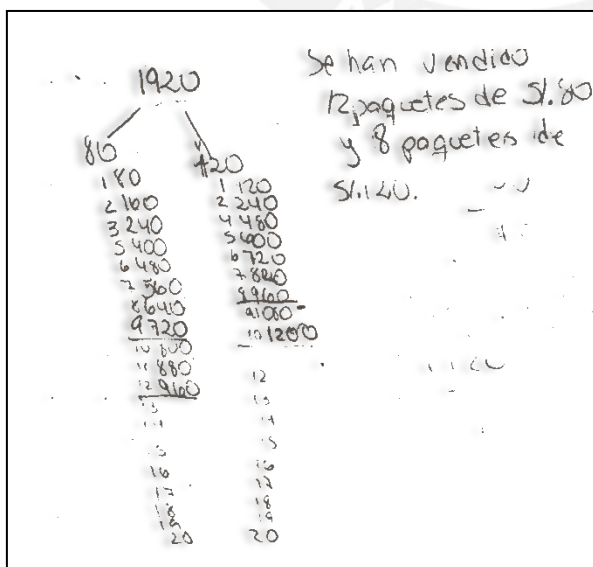 1920
80
1 80
2 160
3 240
5 400
6 480
7 560
8 640
9 720
10 800
11 880
12 960
13
14
15
16
17
18
19
20
120
1 120
2 240
4 480
5 600
6 720
7 840
8 960
9 1080
10 1200
12
13
14
15
16
17
18
19
20
Se han vendido
12 paquetes de S/.80
y 8 paquetes de
S/.120.